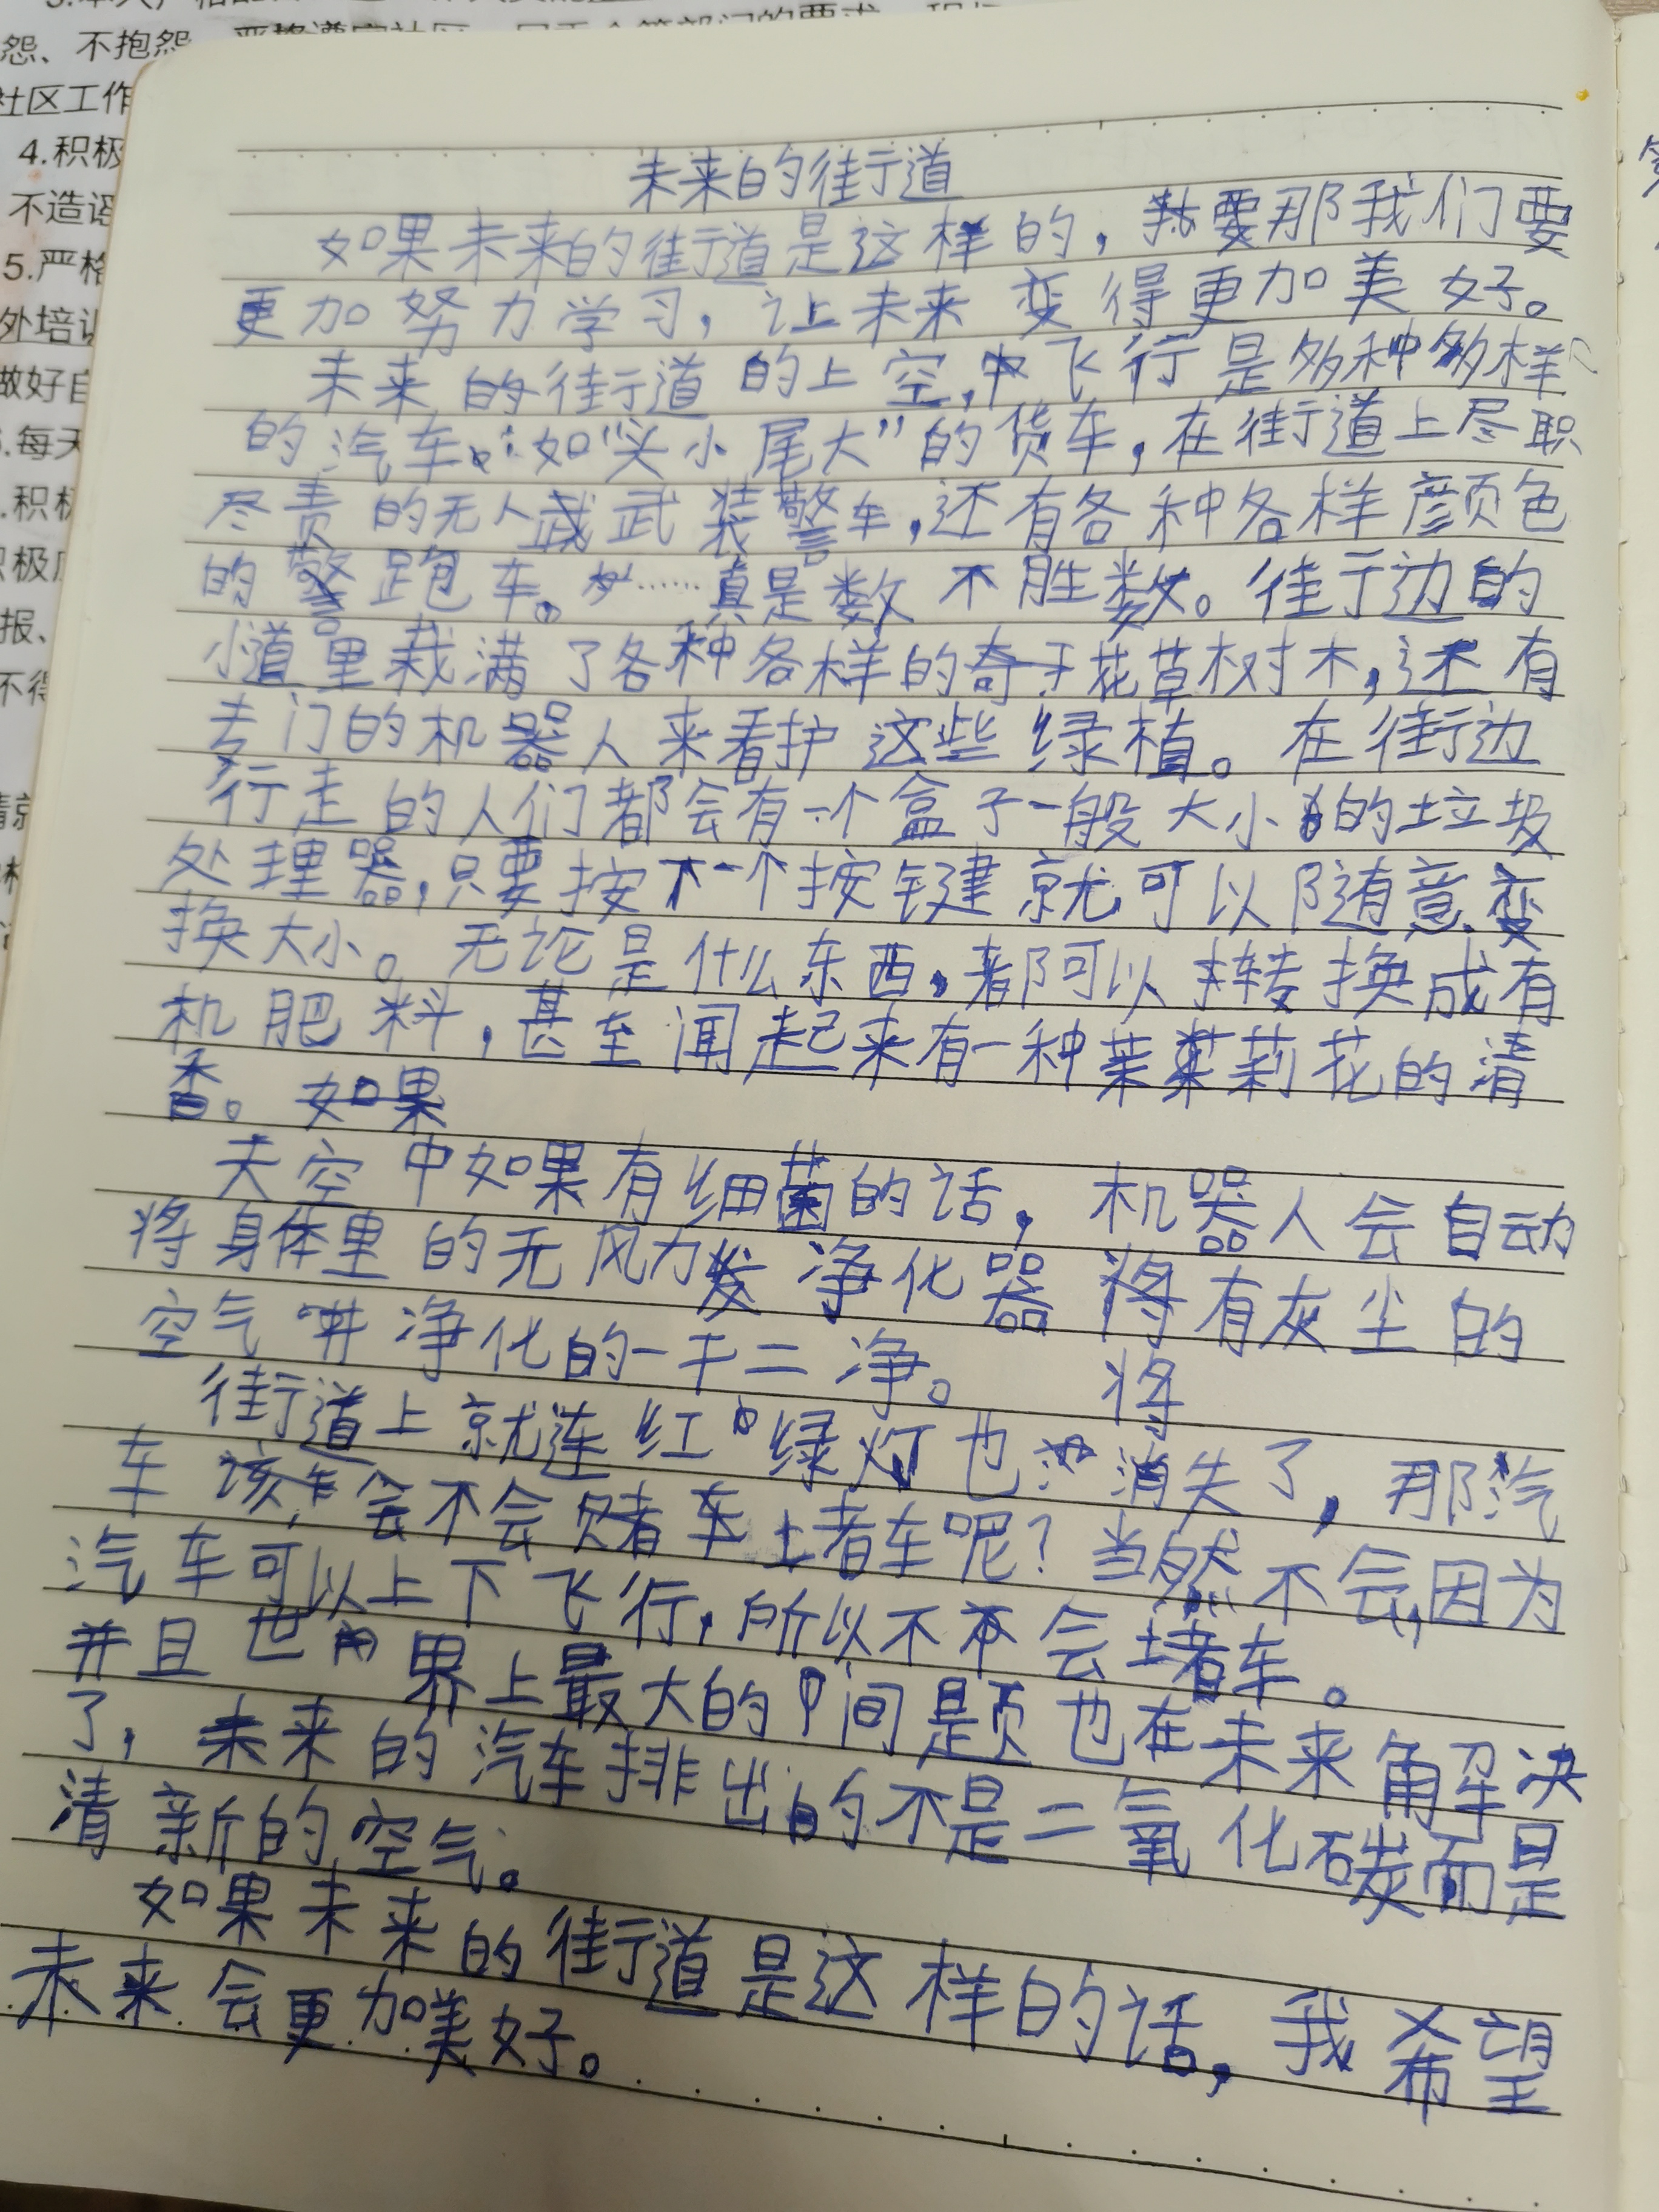 怨、不抱怨
社区工作
4.积极
不造谣
5.严格
外培训
做好自
每天
积极
报、
不得
未来的街道
如果未来的街道是这样的，那我们要
更加努力学习，让未来变得更加美好。
未来的街道的上空，飞行是多种多样
的汽车。如“头小尾大”的货车，在街道上尽职
尽责的无人武装警车，还有各种各样颜色
的跑车。……真是数不胜数。街边的
小道里栽满了各种各样的奇花草树木，还有
专门的机器人来看护这些绿植。在街边
行走的人们都会有一个盒子一般大小的垃圾
处理器，只要按下一个按键就可以随意变
换大小。无论是什么东西，都可以转换成有
机肥料，甚至闻起来有一种茉莉花的清
香。
天空中如果有细菌的话，机器人会自动
将身体里的无风力净化器将有灰尘的
空气净化的一干二净。
街道上就连红绿灯也消失了，那汽
车该会不会堵车呢？当然不会，因为
汽车可以上下飞行，所以不会堵车。
并且世界上最大的问题也在未来解决
了，未来的汽车排出的不是二氧化碳而是
清新的空气。
如果未来的街道是这样的话，我希望
未来会更加美好。